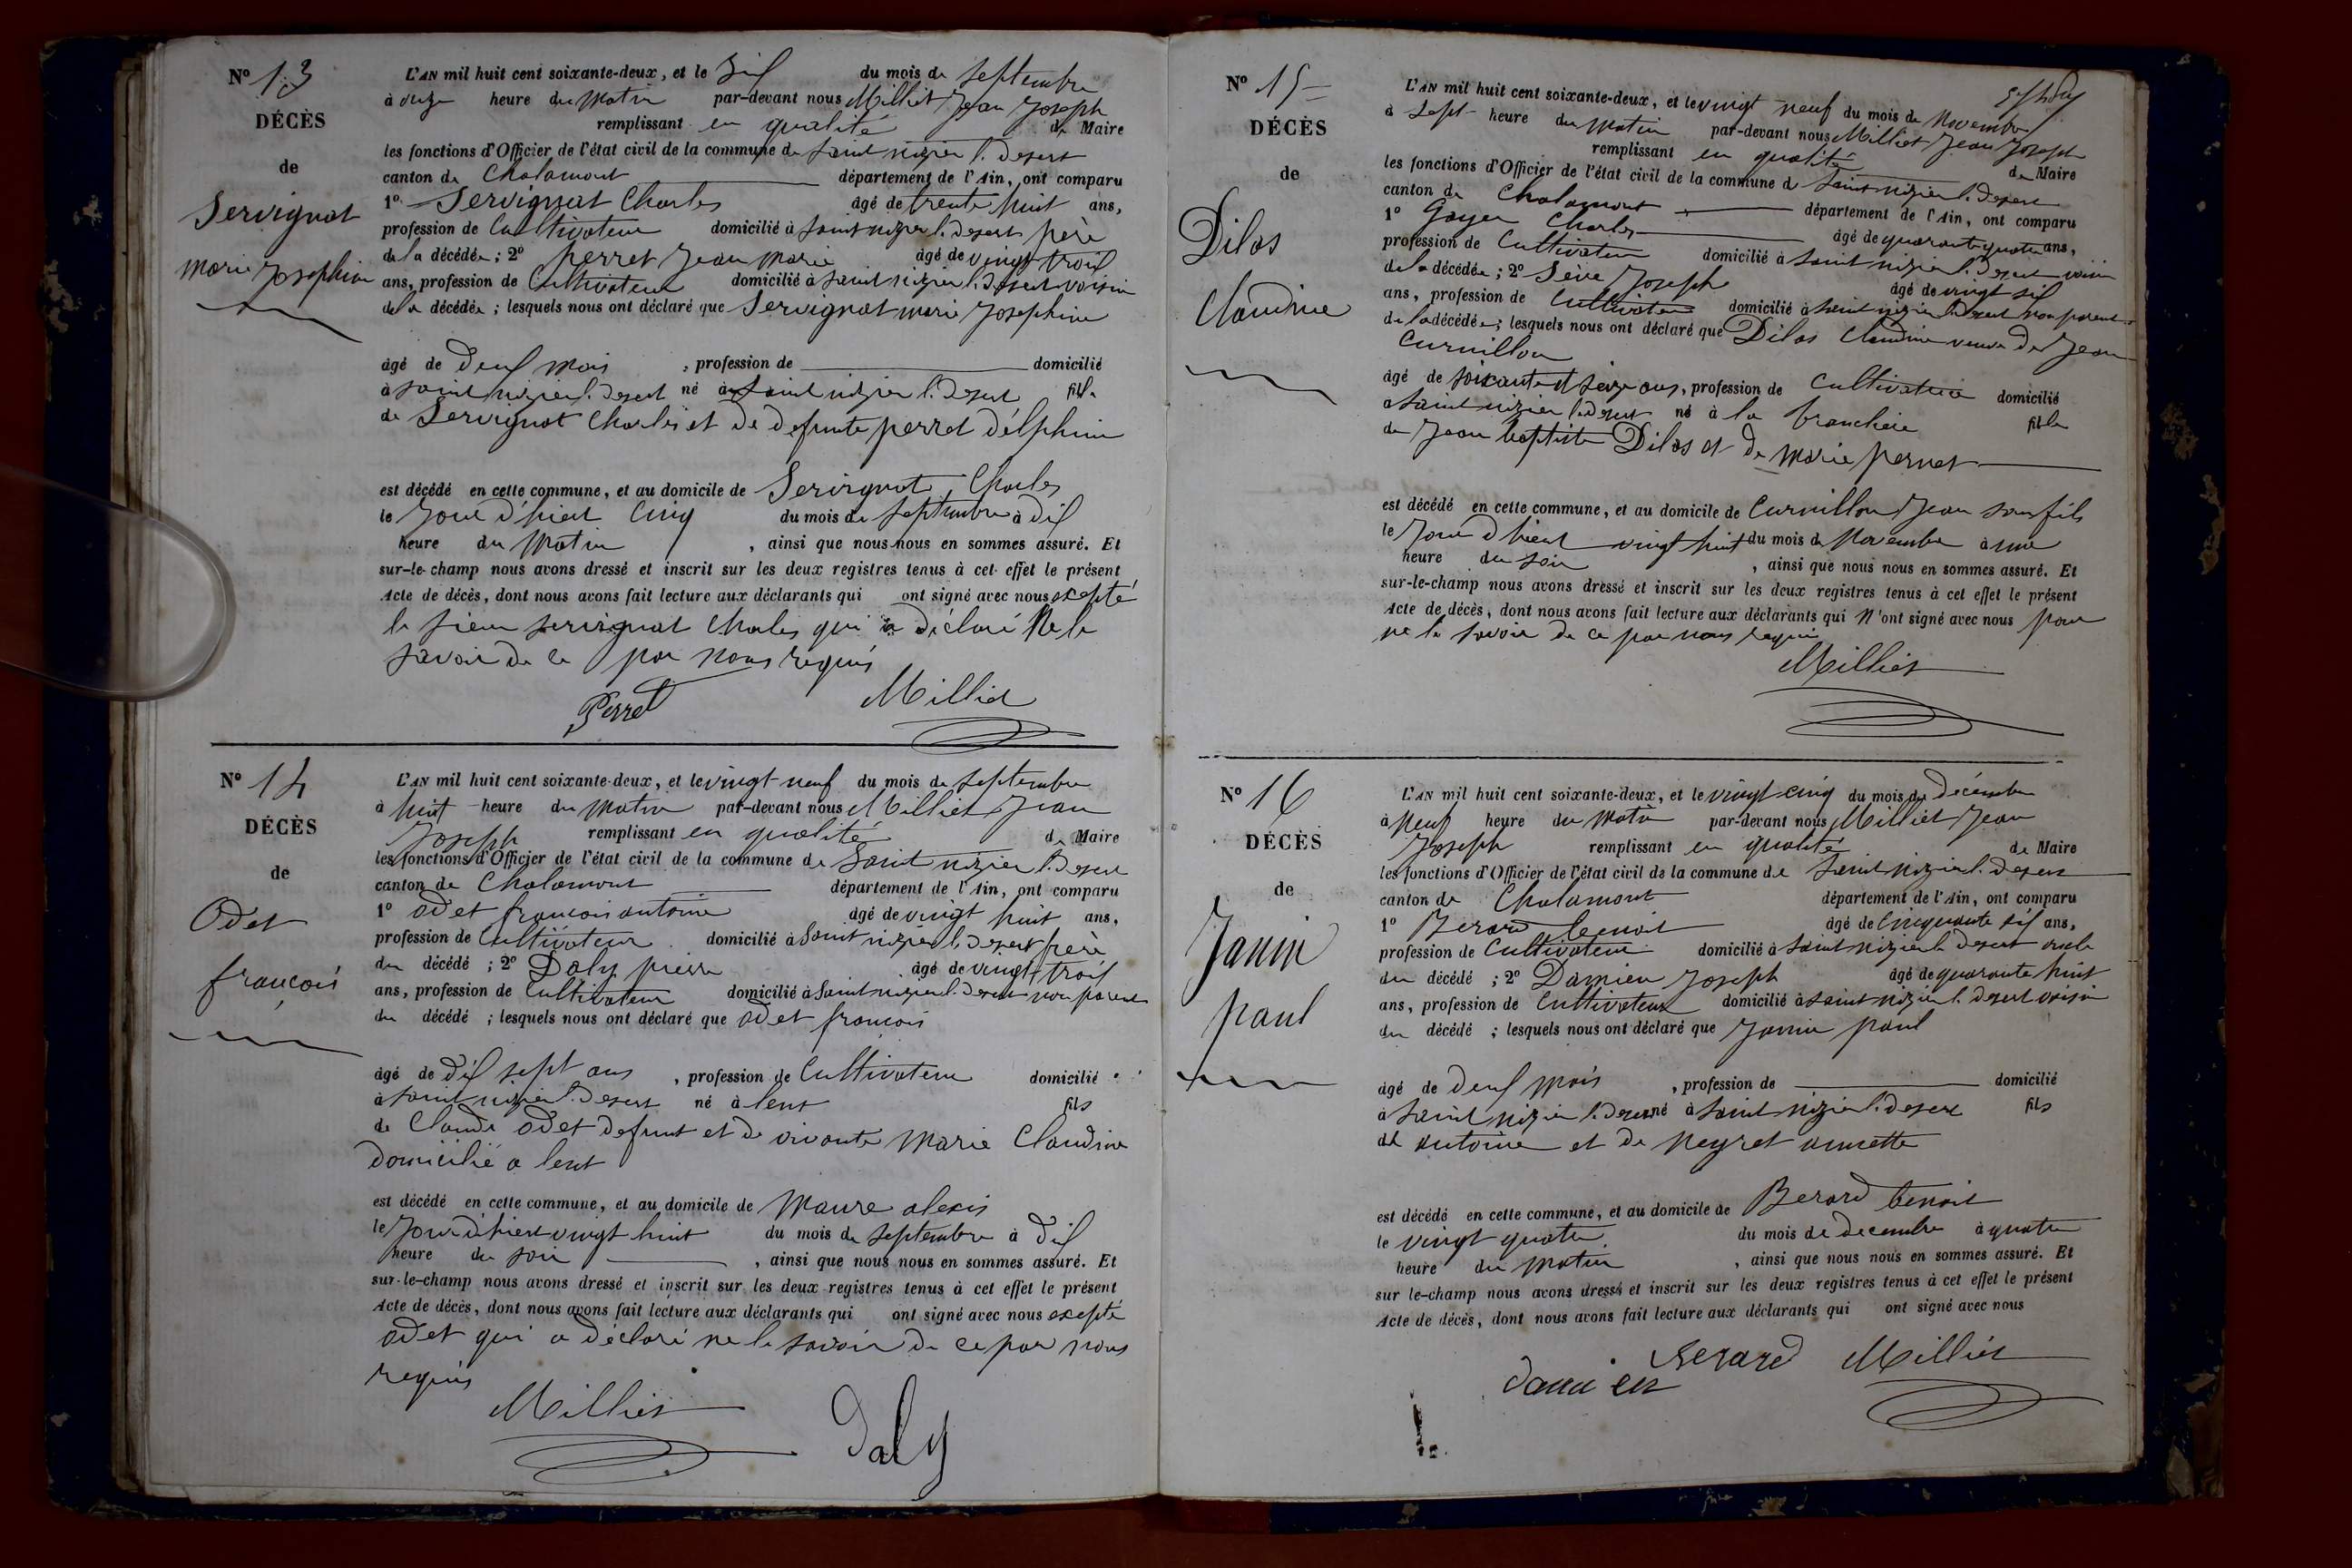 N° 13
DÉCÈS
de
Servignat
marie Josephine
L'AN mil huit cent soixante-deux, et le Six du mois de Septembre
à onze heure du matin par-devant nous Milliet Jean Joseph
remplissant en qualité de Maire
les fonctions d'Officier de l'état civil de la commune de saint nizier l. desert
canton de Chalamont département de l'Ain, ont comparu
1° Servignat Charles âgé de trente huit ans,
profession de Cultivateur domicilié à saint nizier l. desert père
de la décédée ; 2° perret Jean marie âgé de vingt trois
ans, profession de Cultivateur domicilié à saint nizier l. desert voisin
de la décédée ; lesquels nous ont déclaré que Servignat marie Josephine
âgé de deux mois , profession de domicilié
à saint nizier l. desert né à saint nizier l. desert fille
de Servignat Charles et de defunte perret délphine
est décédé en cette commune, et au domicile de Servignat Charles
le jour d'hier Cinq du mois de septembre à dix
heure du matin , ainsi que nous nous en sommes assuré. Et
sur-le-champ nous avons dressé et inscrit sur les deux registres tenus à cet effet le présent
Acte de décès, dont nous avons fait lecture aux déclarants qui ont signé avec nous excepté
le sieur servignat Charles qui a déclaré Ne le
savoir de ce par nous requis
Perret Milliet
N° 14
DÉCÈS
de
Odet
françois
L'AN mil huit cent soixante-deux, et le vingt neuf du mois de septembre
à huit heure du matin par-devant nous Milliet Jean
Joseph remplissant en qualité de Maire
les fonctions d'Officier de l'état civil de la commune de Saint nizier l. desert
canton de Chalamont département de l'Ain, ont comparu
1° odet françois antoine âgé de vingt huit ans,
profession de Cultivateur domicilié à saint nizier l. desert frère
du décédé ; 2° Daly pierre âgé de vingt trois
ans, profession de Cultivateur domicilié à saint nizier l. desert non parent
du décédé ; lesquels nous ont déclaré que odet françois
âgé de dix sept ans , profession de Cultivateur domicilié
à saint nizier l. desert né à lent fils
de Claude odet defunt et de vivante Marie Claudine
domicilié a lent
est décédé en cette commune, et au domicile de Maure alexis
le jour d'hier vingt huit du mois de septembre à dix
heure du soir , ainsi que nous nous en sommes assuré. Et
sur-le-champ nous avons dressé et inscrit sur les deux registres tenus à cet effet le présent
Acte de décès, dont nous avons fait lecture aux déclarants qui ont signé avec nous excepté
odet qui a déclaré ne le savoir de ce par nous
requis
Milliet Daly
N° 15
DÉCÈS
de
Dilas
Claudine
L'AN mil huit cent soixante-deux, et le vingt neuf du mois de Novembre
à sept heure du matin par-devant nous Milliet Jean Joseph
remplissant en qualité de Maire
les fonctions d'Officier de l'état civil de la commune de saint nizier l. desert
canton de Chalamont département de l'Ain, ont comparu
1° Goyer Charles âgé de quarante quatre ans,
profession de Cultivateur domicilié à saint nizier l. desert voisin
de la décédée ; 2° Sève Joseph âgé de vingt six
ans, profession de Cultivateur domicilié à saint nizier l. desert non parent
de la décédée ; lesquels nous ont déclaré que Dilas Claudine veuve de Jean
Curnillon
âgé de soixante et seize ans, profession de Cultivatrice domicilié
à saint nizier l. desert né à la tranchère fille
de Jean baptiste Dilas et de marie pernet
est décédé en cette commune, et au domicile de Curnillon Jean son fils
le jour d'hier vingt huit du mois de Novembre à une
heure du soir , ainsi que nous nous en sommes assuré. Et
sur-le-champ nous avons dressé et inscrit sur les deux registres tenus à cet effet le présent
Acte de décès, dont nous avons fait lecture aux déclarants qui N'ont signé avec nous pour
ne le savoir de ce par nous requis
Milliet
N° 16
DÉCÈS
de
Janin
paul
L'AN mil huit cent soixante-deux, et le vingt cinq du mois de décembre
à Neuf heure du matin par-devant nous Milliet Jean
Joseph remplissant en qualité de Maire
les fonctions d'Officier de l'état civil de la commune de saint nizier l. desert
canton de Chalamont département de l'Ain, ont comparu
1° Berard benoit âgé de Cinquante six ans,
profession de Cultivateur domicilié à saint nizier l. desert oncle
du décédé ; 2° Damien Joseph âgé de quarante huit
ans, profession de Cultivateur domicilié à saint nizier l. desert voisin
du décédé ; lesquels nous ont déclaré que Janin paul
âgé de deux mois , profession de domicilié
à saint nizier l. desert né à saint nizier l. desert fils
de antoine et de Neyret annette
est décédé en cette commune, et au domicile de Berard benoit
le vingt quatre du mois de decembre à quatre
heure du matin , ainsi que nous nous en sommes assuré. Et
sur le-champ nous avons dressé et inscrit sur les deux registres tenus à cet effet le présent
Acte de décès, dont nous avons fait lecture aux déclarants qui ont signé avec nous
damien Berard Milliet